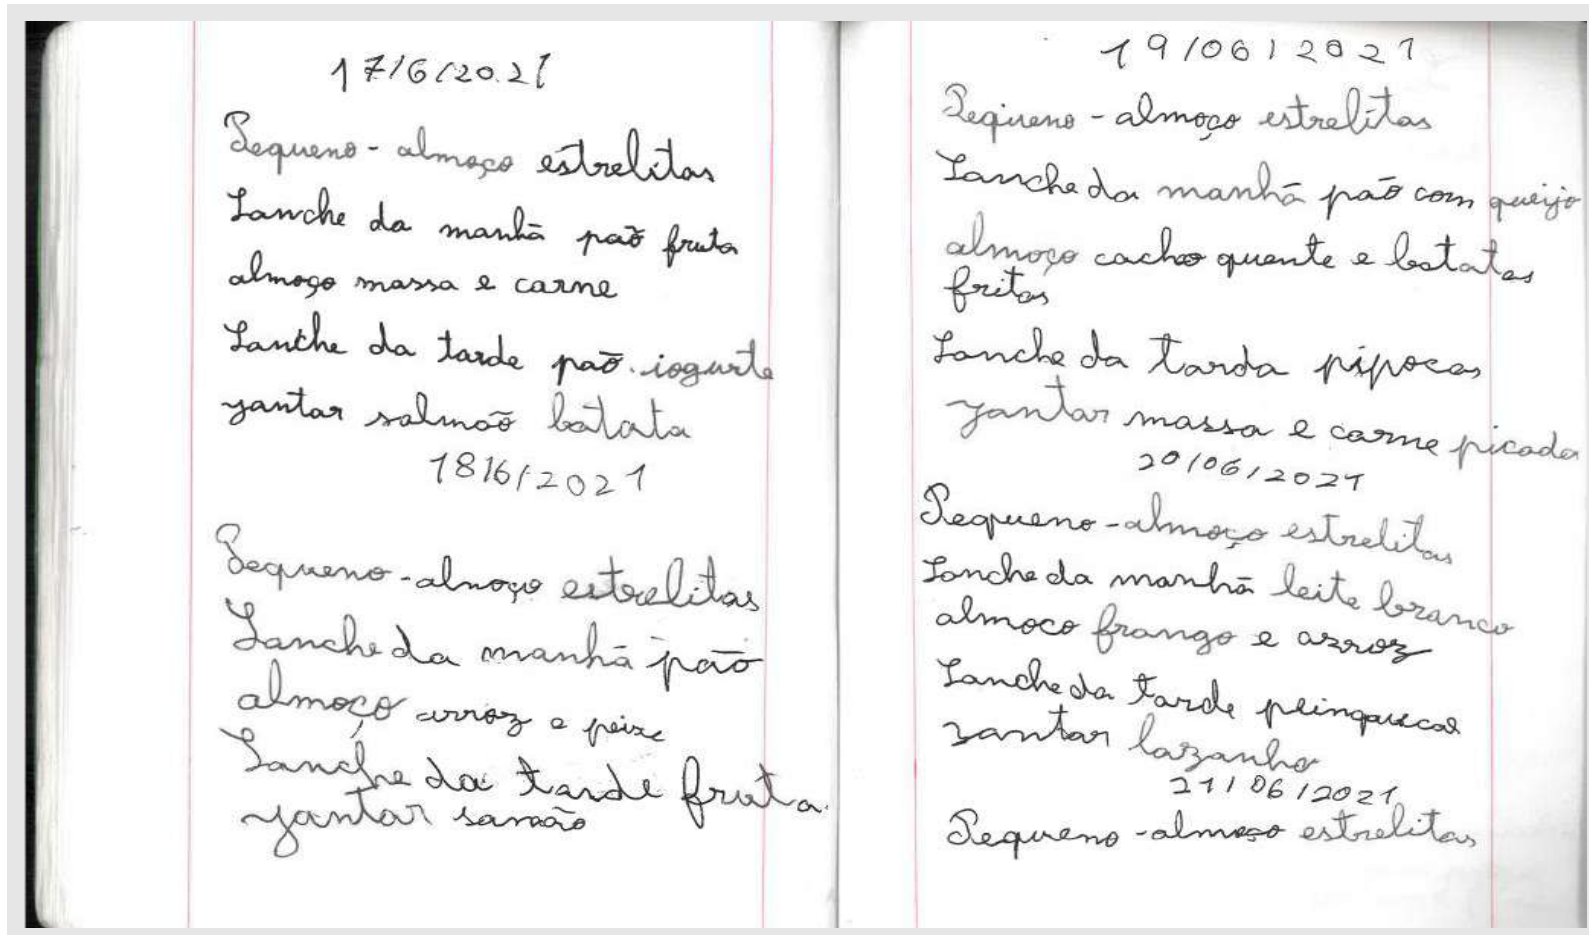 17/6/2021
Pequeno-almoço estrelitas
Lanche da manhã paõ fruta
almoço massa e carne
Lanche da tarde paõ iogurte
yantar salmoõ batata
18/6/2021
Pequeno-alnoço estrelitas
Lanche da manhã paõ
almoço arroz e peixe
Lanche da tarde fruta
yantar samão
19/06/2021
Pequeno-almoço estrelitas
Lanche da manhã paõ com queijo
almoço cacho quente e batatas
fritas
Lanche da tarda pipocas
yantar massa e carne picada
20/06/2021
Pequeno-almoço estrelitas
Lanche da manhã leite branco
almoco frango e arroz
Lanche da tarde
yantar lazanha
21/06/2021
Pequeno-almoço estrelitas